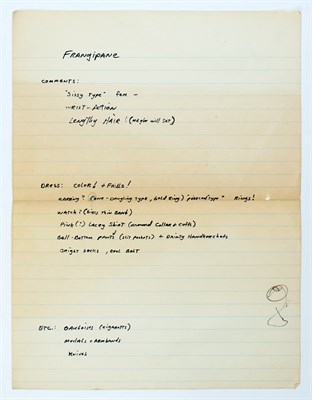 FRANGIPANE
COMMENTS:
"Sissy Type" fem –
WRIST-ACTION
LENGTHY HAIR! (Maybe will set)
DRESS: COLOR! + FRILLS!
EARRING? (Care-Dangling type, Gold Ring) "pierced type" Rings!
WATCH? (thin Band)
Pink(?) Lacey Shirt (around Collar + Cuffs)
Bell-Bottom pants! (slit pockets) + Dainty Handkerchiefs
Bright socks, cool Belt
ETC.: GAULOISES (cigarettes)
Medals + armbands
Knives